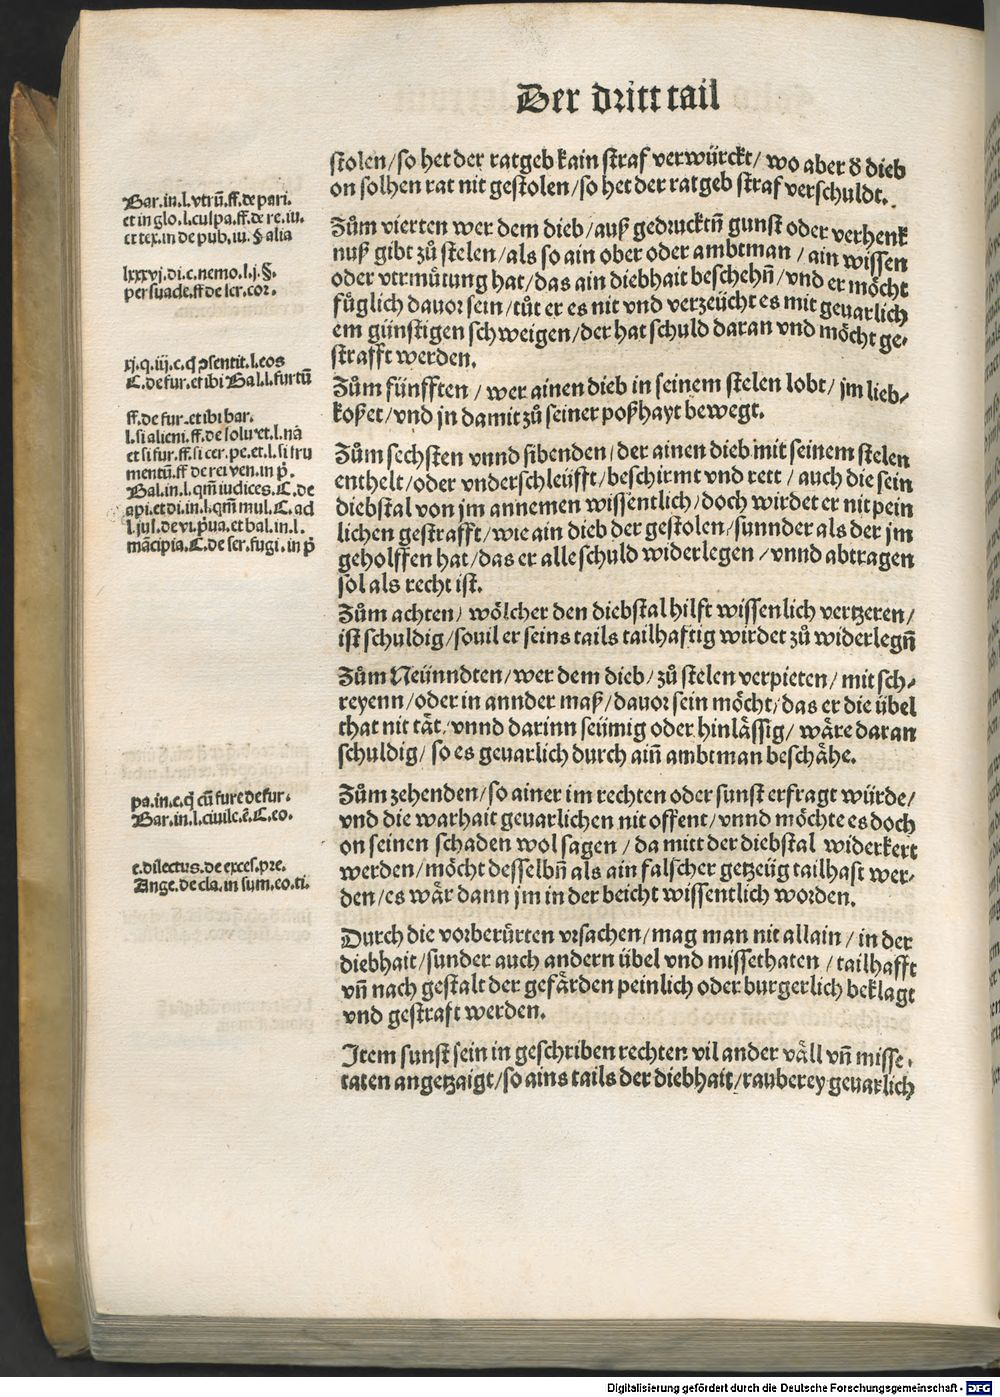 Der dritt tail
stolen/so het der ratgeb kain straf verwürckt/ wo aber ð dieb
on solhen rat nit gestolen/so het der ratgeb straf verschuldt.
Bar.in.l.vtrū.ff.de pari.
et in glo.l.culpa.ff.de re.iu.
et tex.in de pub.iu.§ alia
lxxxvj.di.c.nemo.l.j.§.
persuade.ff de ser.cor.
Zům vierten wer dem dieb/auß gedrucktñ gunst oder verhenk
nuß gibt zů stelen/als so ain ober oder ambtman/ain wissen
oder vermůtung hat/das ain diebhait beschehñ/vnd er möcht
fůglich dauor sein/tůt er es nit vnd verzeücht es mit geuarlich
em günstigen schweigen/der hat schuld daran vnd möcht ge-
strafft werden.
xj.q.iij.c.q̄ ɔsentit.l.eos
C.de fur.et ibi Bal.l.furtū
Zům fünfften/wer ainen dieb in seinem stelen lobt/jm lieb-
koßet/vnd jn damit zů seiner poßhayt bewegt.
ff.de fur.et ibi bar.
l.si alieni.ff.de solu et.l.nā
et si fur.ff.si cer.pe.et.l.si fru
mentū.ff de rei ven.in p̄.
Bal.in.l.qm̄ iudices.C.de
api.et di.in.l.qm̄ mul.C.ad
l.jul.de vi.p̄ua.et bal.in.l.
mācipia.C.de ser.fugi.in p̄
Zům sechsten vnnd sibenden/der ainen dieb mit seinem stelen
enthelt/oder vnderschleüfft/beschirmt vnd rett/auch die sein
diebstal von jm annemen wissentlich/doch wirdet er nit pein
lichen gestrafft/wie ain dieb der gestolen/sunnder als der jm
geholffen hat/das er alle schuld widerlegen/vnnd abtragen
sol als recht ist.
Zům achten/wölcher den diebstal hilft wissenlich vertzeren/
ist schuldig/souil er seins tails tailhaftig wirdet zů widerlegñ
Zům Neünndten/wer dem dieb/zů stelen verpieten/mit sch-
reyenn/oder in annder maß/dauor sein möcht/das er die übel
that nit tät/vnnd darinn seümig oder hinlässig/wäre daran
schuldig/so es geuarlich durch ainñ ambtman beschähe.
pa.in.c.q̄ cū fure de fur.
Bar.in.l.ciuile.ē.C.eo.
c.dilectus.de exces.pre.
Ange.de cla.in sum.eo.ti.
Zům zehenden/so ainer im rechten oder sunst erfragt würde/
vnd die warhait geuarlichen nit offent/vnnd möchte es doch
on seinen schaden wol sagen/da mitt der diebstal widerkert
werden/möcht desselbñ als ain falscher getzeüg tailhaft wer-
den/es wär dann jm in der beicht wissentlich worden.
Durch die vorberürten vrsachen/mag man nit allain/in der
diebhait/sunder auch andern übel vnd missethaten/tailhafft
vñ nach gestalt der gefärden peinlich oder burgerlich beklagt
vnd gestraft werden.
Item sunst sein in geschriben rechten vil ander väll vñ misse-
taten angetzaigt/so ains tails der diebhait/rauberey geuarlich
Digitalisierung gefördert durch die Deutsche Forschungsgemeinschaft - DFG